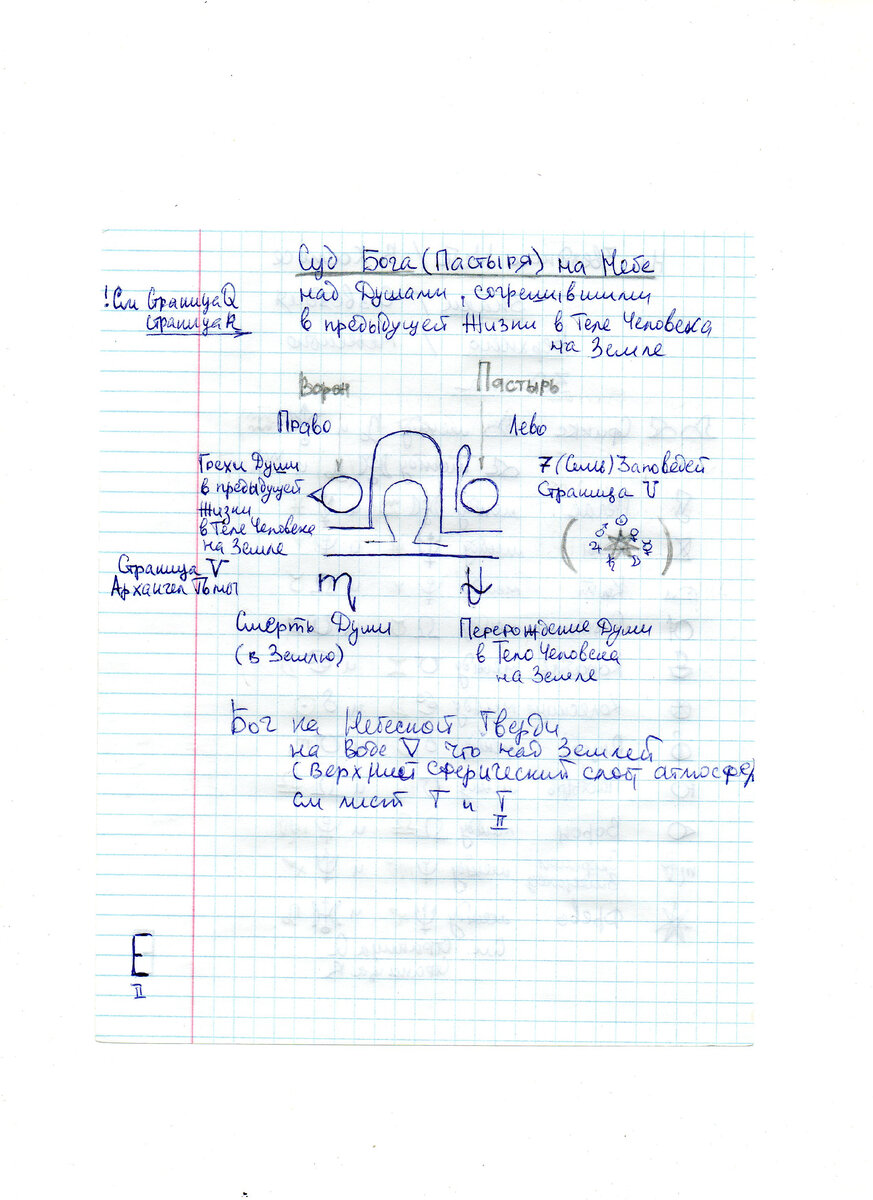 Суд Бога (Пастыря) на Небе
! См Страница Q
Страница R
над Душами, согрешившими
в предыдущей Жизни в Теле Человека
на Земле
Ворон
Пастырь
Право
Лево
Грехи Души
в предыдущей
Жизни
в Теле Человека
на Земле
Страница V
Архангел Тьмы
7 (Семь) Заповедей
Страница U
( ☉ ♀ ☿ ☽ ♄ ♃ ♂ )
♏
Смерть Души
(в Землю)
Перерождение Души
в Тело Человека
на Земле
Бог на Небесной Тверди
на Воде ▽ что над Землей
(верхний сферический слой атмосфер
см лист T и T
II
E
II